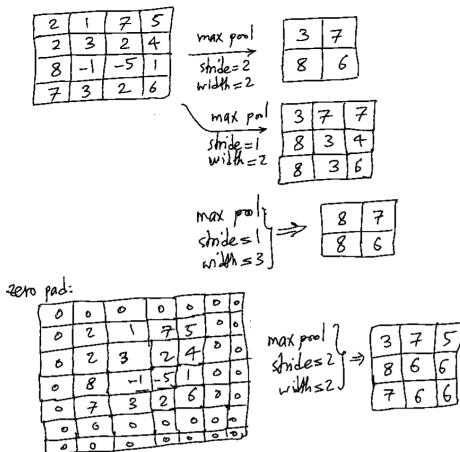 2 1 7 5
2 3 2 4
8 -1 -5 1
7 3 2 6
max pool
stride=2
width=2
3 7
8 6
max pool
stride=1
width=2
3 7 7
8 3 4
8 3 6
max pool
stride=1
width=3
8 7
8 6
zero pad:
0 0 0 0 0 0 0
0 2 1 7 5 0 0
0 2 3 2 4 0 0
0 8 -1 -5 1 0 0
0 7 3 2 6 0 0
0 0 0 0 0 0 0
0 0 0 0 0 0 0
max pool
stride=2
width=2
3 7 5
8 6 6
7 6 6